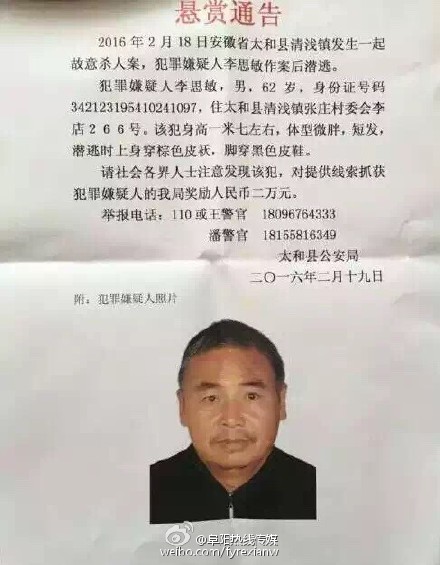 悬赏通告
2016年2月18日安徽省太和县清浅镇发生一起
故意杀人案，犯罪嫌疑人李思敏作案后潜逃。
犯罪嫌疑人李思敏，男，62岁，身份证号码
342123195410241097，住太和县清浅镇张庄村委会李
店266号。该犯身高一米七左右，体型微胖，短发，
潜逃时上身穿棕色皮袄，脚穿黑色皮鞋。
请社会各界人士注意发现该犯，对提供线索抓获
犯罪嫌疑人的我局奖励人民币二万元。
举报电话：110或王警官 18096764333
潘警官 18155816349
太和县公安局
二〇一六年二月十九日
附：犯罪嫌疑人照片
@阜阳热线传媒
weibo.com/fyrexianw